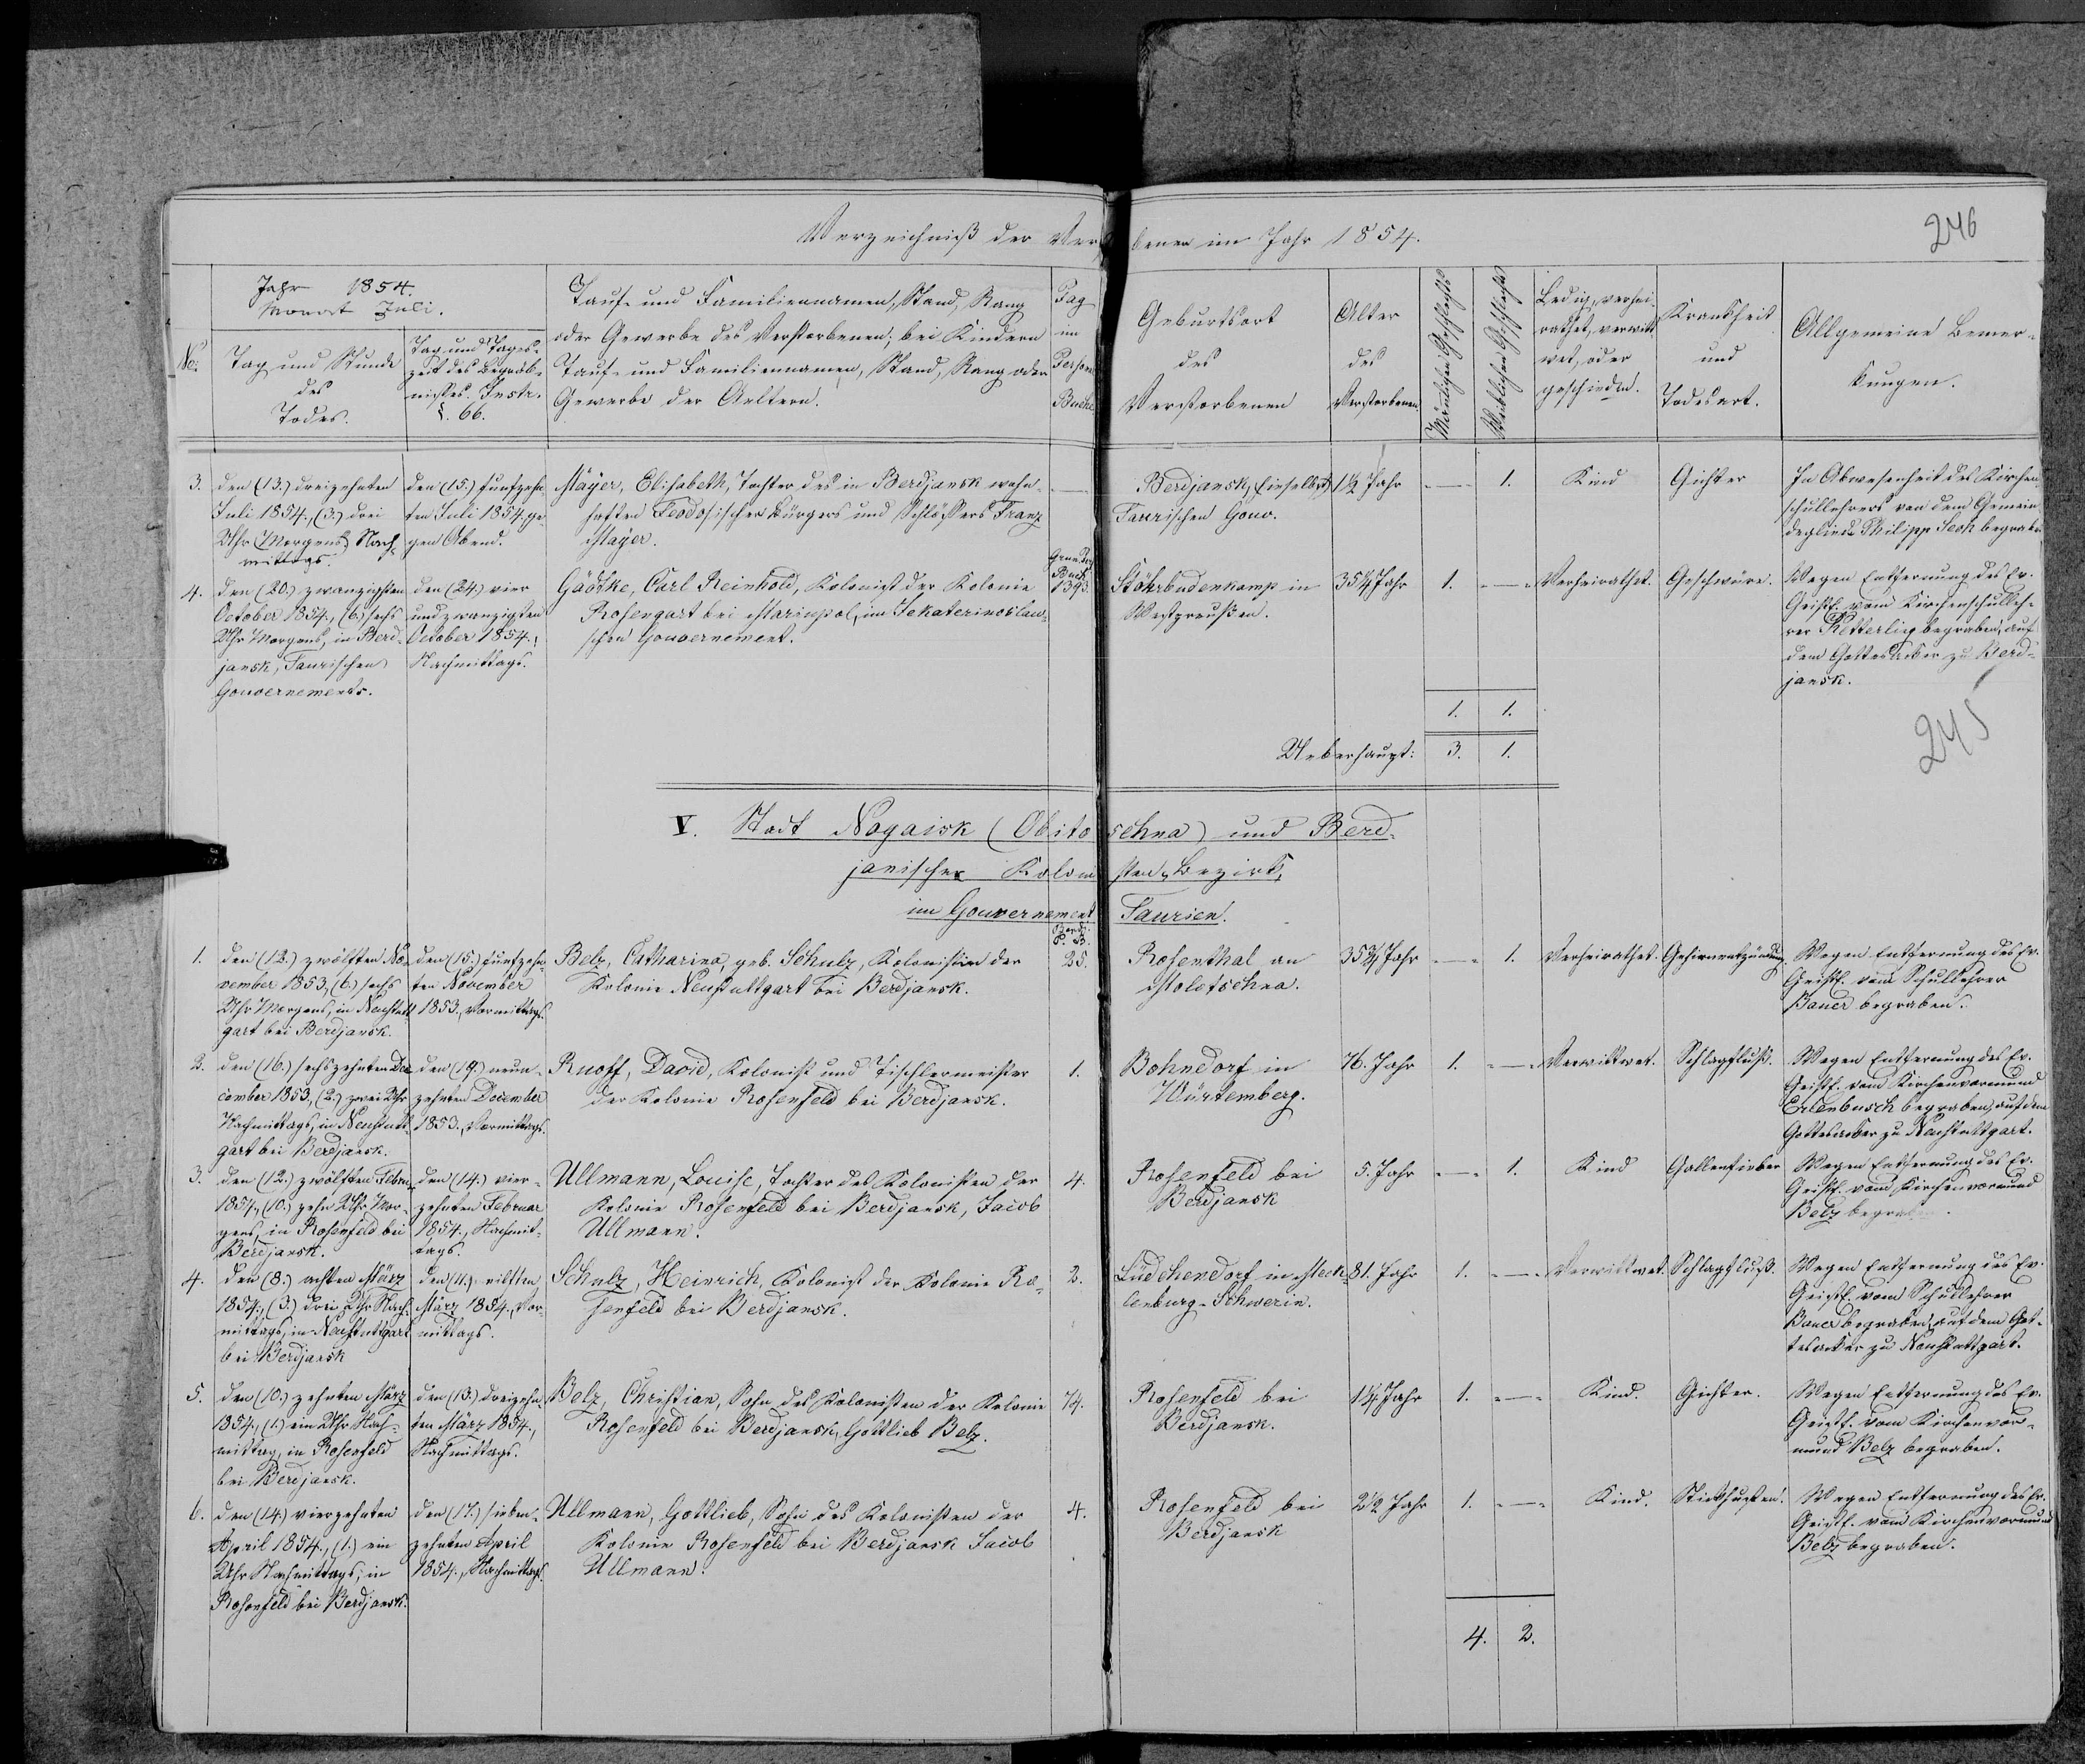 Verzeichniß der Ver
benen im Jahr 1854.
246
Jahr 1854.
Monat Juli.
No:
Tag und Stunde
des
Todes.
Tag und Tages-
zeit des Begräb-
nisses. Instr.
§. 66.
Tauf- und Familiennamen, Stand, Rang
oder Gewerbe des Verstorbenen; bei Kindern
Tauf- und Familiennamen, Stand, Rang oder
Gewerbe der Aeltern.
Pag
im
Person
Buche
Geburtsort
des
Verstorbenen
Alter
des
Verstorbenen.
Männlichen Geschlechts
Weiblichen Geschlechts
Ledig, verhei-
rathet, verwitt
wet, oder
geschieden.
Krankheit
und
Todesart.
Allgemeine Bemer-
kungen.
3.
den (13.) dreizehnten
Juli 1854., (3.) drei
Uhr (Morgens) Nach-
mittags.
den (15.) fünfzehn-
ten Juli 1854. ge-
gen Abend.
Mayer, Elisabeth, Tochter des in Berdjansk wohn-
haften Feodosischen Bürgers und Schlossers Franz
Mayer.
Berdjansk, (hieselbst)
Taurischen Gouv.
1½ Jahr
1.
Kind
Gichter
In Abwesenheit des Kirchen-
schullehrers von dem Gemein-
degliede Philipp Seck begraben
4.
den (20.) zwanzigsten
October 1854., (6.) sechs
Uhr Morgens, in Berd-
jansk, Taurischen
Gouvernements.
den (24.) vier
und zwanzigsten
October 1854.,
Nachmittags.
Gädtke, Carl Reinhold, Kolonist der Kolonie
Rosengart bei Mariupol, im Jekaterinoslaw-
schen Gouvernement.
Buch
139
Stöhrbudenkamp in
Westpreußen.
35¼ Jahr
1.
Verheirathet.
Geschwüre.
Wegen Entfernung des Ev.
Geistl. vom Kirchenschulleh-
rer Ketterling begraben, auf
dem Gottesacker zu Berd-
jansk.
1. 1.
Ueberhaupt: 3. 1.
245
V. Stadt Nogaisk (Obito schna) und Berd-
janischer Koloni sten-Bezirk,
im Gouvernement Taurien.
1.
den (12.) zwölften No-
vember 1853, (6.) sechs
Uhr Morgens, in Neustutt-
gart bei Berdjansk.
den (15.) fünfzehn-
ten November
1853., Vormittags.
Belz, Catharina, geb. Schulz, Kolonistin der
Kolonie Neustuttgart bei Berdjansk.
Berdj.
P. B.
25.
Rosenthal an
Molotschna.
35¾ Jahr
1.
Verheirathet.
Gehirnentzündung.
Wegen Entfernung des Ev.
Geistl. vom Schullehrer
Bauer begraben.
2.
den (16.) sechszehnten De-
cember 1853, (2.) zwei Uhr
Nachmittags, in Neustutt-
gart bei Berdjansk.
den (19.) neun-
zehnten December
1853., Vormittags.
Ruoff, David, Kolonist und Tischlermeister
der Kolonie Rosenfeld bei Berdjansk.
1.
Bohndorf in
Würtemberg.
76. Jahr
1.
Verwittwet.
Schlagfluß.
Wegen Entfernung des Ev.
Geistl. vom Kirchenvormund
Erlenbusch begraben, auf dem
Gottesacker zu Neustuttgart.
3.
den (12.) zwölften Febru-
1854., (10.) zehn Uhr Mor-
gens, in Rosenfeld bei
Berdjansk.
den (14.) vier-
zehnten Februar
1854., Nachmit-
tags.
Ullmann, Louise, Tochter des Kolonisten der
Kolonie Rosenfeld bei Berdjansk, Jacob
Ullmann.
4.
Rosenfeld bei
Berdjansk
5. Jahr
1.
Kind
Gallenfieber
Wegen Entfernung des Ev.
Geistl. vom Kirchenvormund
Belz begraben.
4.
den (8.) achten März
1854., (3.) drei Uhr Nach-
mittags, in Neustuttgart
bei Berdjansk
den (11.) eilften
März 1854., Vor-
mittags.
Schulz, Heinrich, Kolonist der Kolonie Ro-
senfeld bei Berdjansk.
2.
Lüdchendorf in Meck-
lenburg-Schwerin.
81. Jahr
1.
Verwittwet.
Schlagfluß.
Wegen Entfernung des Ev.
Geistl. vom Schullehrer
Bauer begraben, auf dem Got-
tesacker zu Neustuttgart.
5.
den (10.) zehnten März
1854., (1.) ein Uhr Nach-
mittag, in Rosenfeld
bei Berdjansk.
den (13.) dreizehn-
ten März 1854.,
Nachmittags.
Belz, Christian, Sohn des Kolonisten der Kolonie
Rosenfeld bei Berdjansk, Gottlieb Belz.
74.
Rosenfeld bei
Berdjansk.
1¼ Jahr
1.
Kind.
Gichter.
Wegen Entfernung des Ev.
Geistl. vom Kirchenvor-
mund Belz begraben.
6.
den (14.) vierzehnten
April 1854., (1.) ein
Uhr Nachmittags, in
Rosenfeld bei Berdjansk.
den (17.) sieben-
zehnten April
1854., Nachmittags.
Ullmann, Gottlieb, Sohn des Kolonisten der
Kolonie Rosenfeld bei Berdjansk Jacob
Ullmann.
4.
Rosenfeld bei
Berdjansk
2½ Jahr
1.
Kind.
Stickhusten.
Wegen Entfernung des Ev.
Geistl. vom Kirchenvormund
Belz begraben.
4. 2.